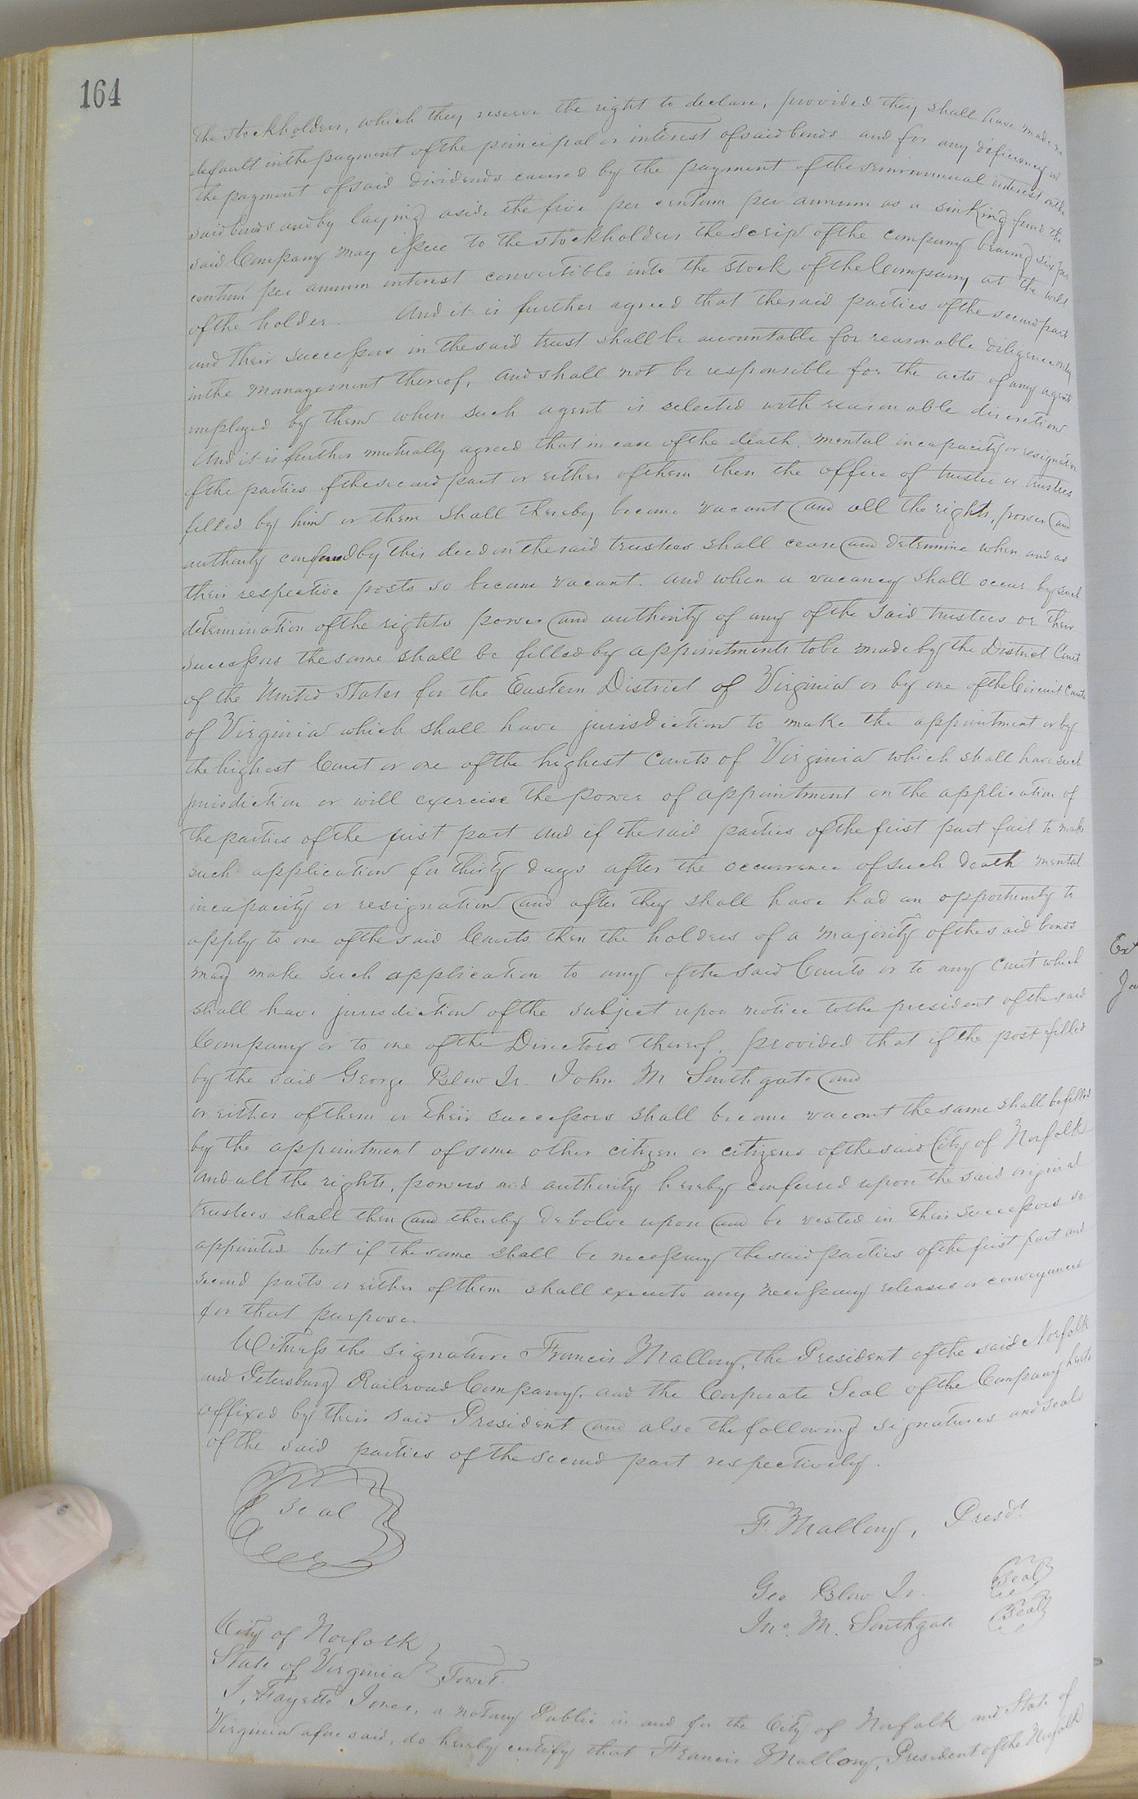 164
the stockholders, which they reserve the right to declare, provided they shall have made no
default in the payment of the principal or interest of said bonds and for any deficiency in
the payment of said dividends caused by the payment of the semiannual interest on the
said bonds and by laying aside the five per centum per annum as a sinking fund the
said Company may issue to the stockholders the scrip of the company bearing six per
centum per annum interest convertible into the stock of the Company at the will
of the holder. And it is further agreed that the said parties of the second part
and their successors in the said trust shall be accountable for reasonable diligence only
in the management thereof, and shall not be responsible for the acts of any agent
employed by them when such agent is selected with reasonable discretion
And it is further mutually agreed that in case of the death, mental incapacity or resignation
of the parties of the second part or either of them then the office of trustee or trustees
filled by him or them shall thereby become vacant and all the rights, power and
authority conferred by this deed on the said trustees shall cease and determine when and as
their respective posts so become vacant. and when a vacancy shall occur by such
determination of the rights power and authority of any of the said trustees or their
successors the same shall be filled by appointments to be made by the District Court
of the United States for the Eastern District of Virginia or by one of the Circuit Courts
of Virginia which shall have jurisdiction to make the appointment or by
the highest Court or one of the highest Courts of Virginia which shall have such
jurisdiction or will exercise the power of appointment on the application of
the parties of the first part and if the said parties of the first part fail to make
such application for thirty days after the occurrence of such death mental
incapacity or resignation and after they shall have had an opportunity to
apply to one of the said Courts then the holders of a majority of the said bonds
may make such application to any of the said Courts or to any Court which
shall have jurisdiction of the subject upon notice to the president of the said
Company or to one of the Directors thereof, provided that if the post filled
by the said George Blow Jr. John M Southgate and
or either of them or their successors shall become vacant the same shall be filled
by the appointment of some other citizen or citizens of the said City of Norfolk
and all the rights, powers and authority hereby conferred upon the said original
trustees shall then and thereby devolve upon and be vested in their successors so
appointed but if the same shall be necessary the said parties of the first part and
second parts or either of them shall execute any necessary releases or conveyances
for that purpose.
Witness the signature Francis Mallory, the President of the said Norfolk
and Petersburg Railroad Company, and the Corporate Seal of the Company hereto
affixed by their said President and also the following signatures and seals
of the said parties of the second part respectively.
Seal
F. Mallory, Presdt.
Geo Blow Jr. Seal
Jno. M. Southgate Seal
City of Norfolk
State of Virginia Towit.
I, Fayette Jones, a notary Public in and for the City of Norfolk and State of
Virginia aforesaid, do hereby certify that Francis Mallory, President of the Norfolk